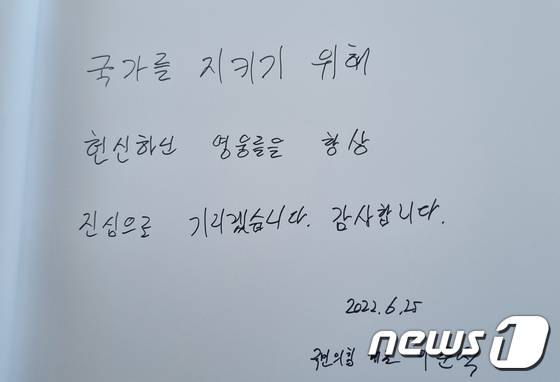 국가를 지키기 위해
헌신하신 영웅들을 항상
진심으로 기리겠습니다. 감사합니다.
2022.6.25
국민의힘 대표
news1